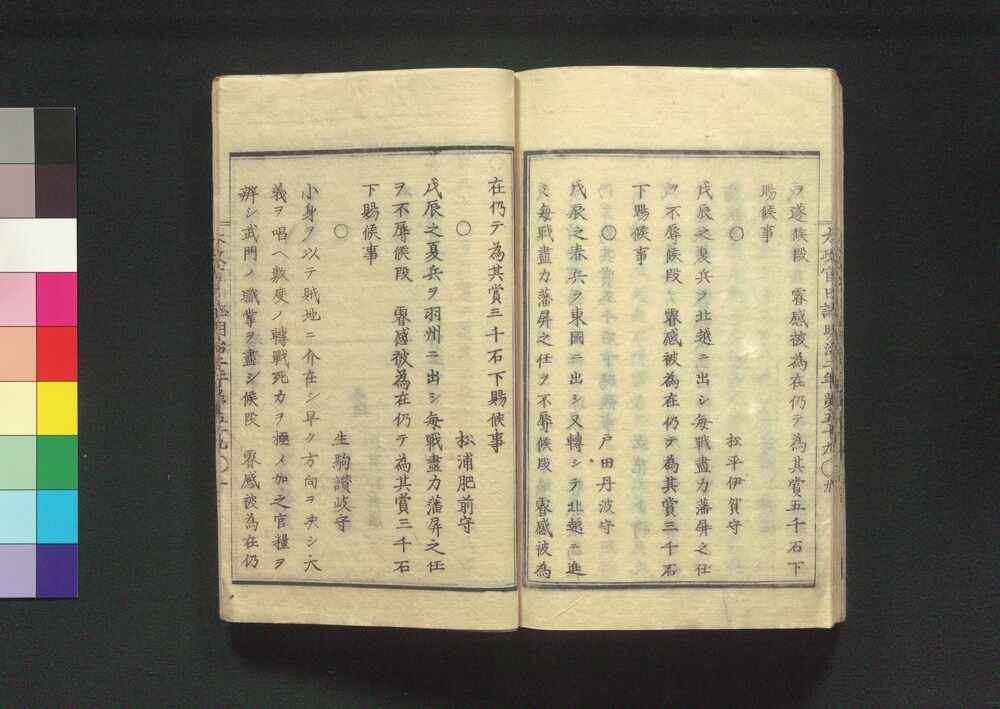 ヲ遂候段　睿感被為在仍テ為其賞五千石下
賜候事
〇　　　　　松平伊賀守
戊辰之夏兵ヲ北越ニ出シ毎戰盡力藩屏之任
ヲ不辱候段　睿感被為在仍テ為其賞三千石
下賜候事
〇　　　　　戸田丹波守
戊辰之春兵ヲ東國ニ出シ又轉シテ北越ニ進
ミ毎戰盡力藩屏之任ヲ不辱候段　睿感被為
在仍テ為其賞三千石下賜候事
〇　　　　　松浦肥前守
戊辰之夏兵ヲ羽州ニ出シ毎戰盡力藩屏之任
ヲ不辱候段　睿感被為在仍テ為其賞三千石
下賜候事
〇　　　　　生駒讃岐守
小身ヲ以テ賊地ニ介在シ早ク方向ヲ决シ大
義ヲ唱ヘ數度ノ轉戰死力ヲ極メ加之官糧ヲ
辨シ武門ノ職掌ヲ盡シ候段　睿感被為在仍
太政官日誌明治二年第五十九〇